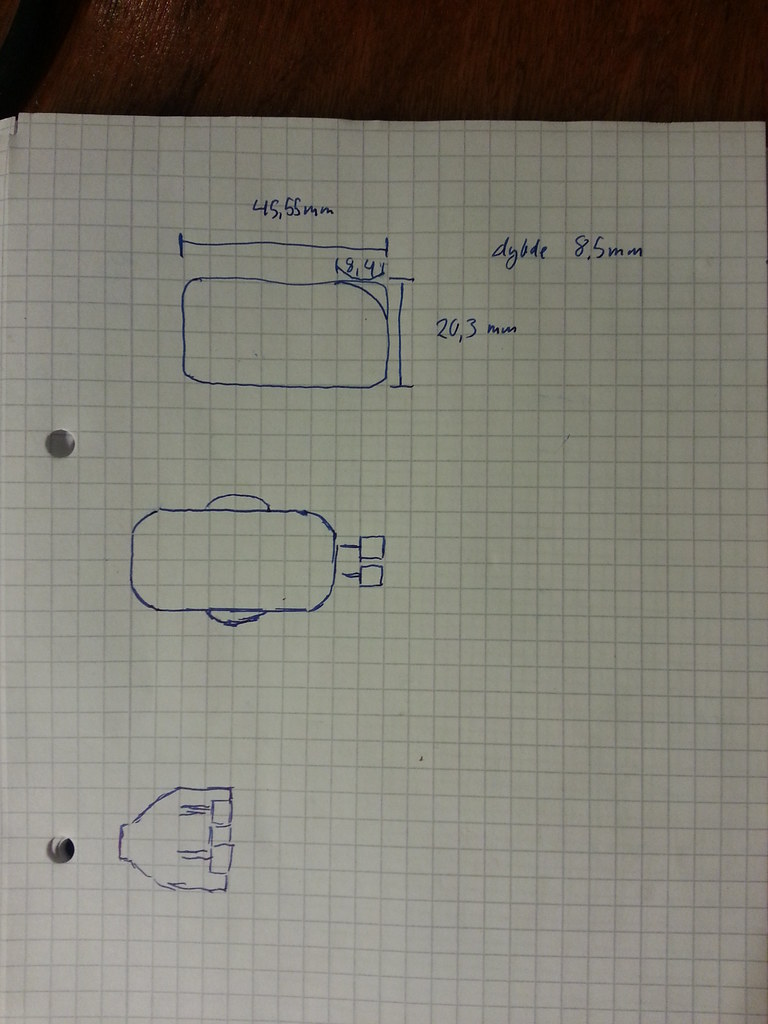 45,55mm
8,4
dybde 8.5mm
20,3 mm